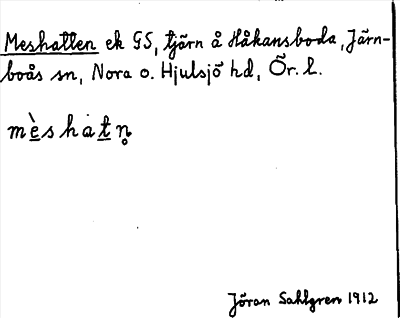 Meshatten ek GS, tjärn å Håkansboda, Järn-
boås sn, Nora o. Hjulsjö hd, Ör. l.
mèshatn̥
Jöran Sahlgren 1912